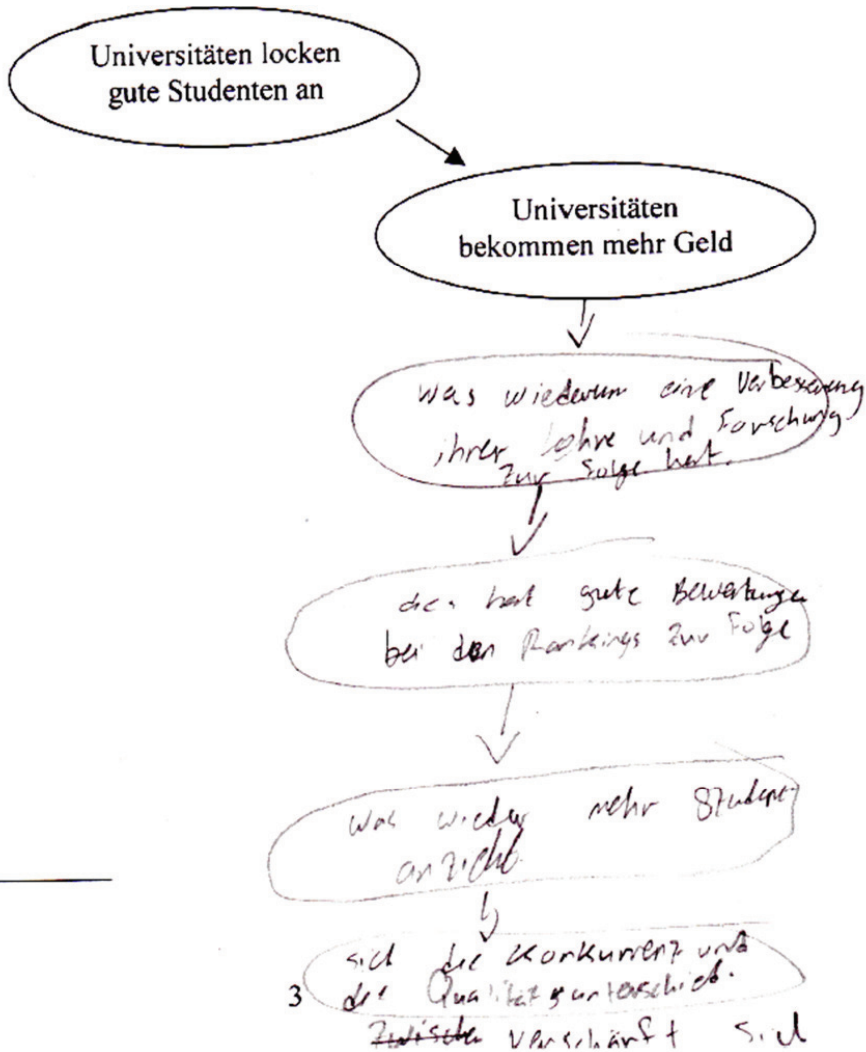 Universitäten locken
gute Studenten an
Universitäten
bekommen mehr Geld
was wiederum eine Verbesserung
ihrer Lehre und Forschung
zur Folge hat.
dies hat gute Bewertungen
bei den Rankings zur Folge
was wieder mehr Student
anzieht.
sich die Konkurrenz und
3 die Qualitätsunterschied.
Zwischen verschärft sich